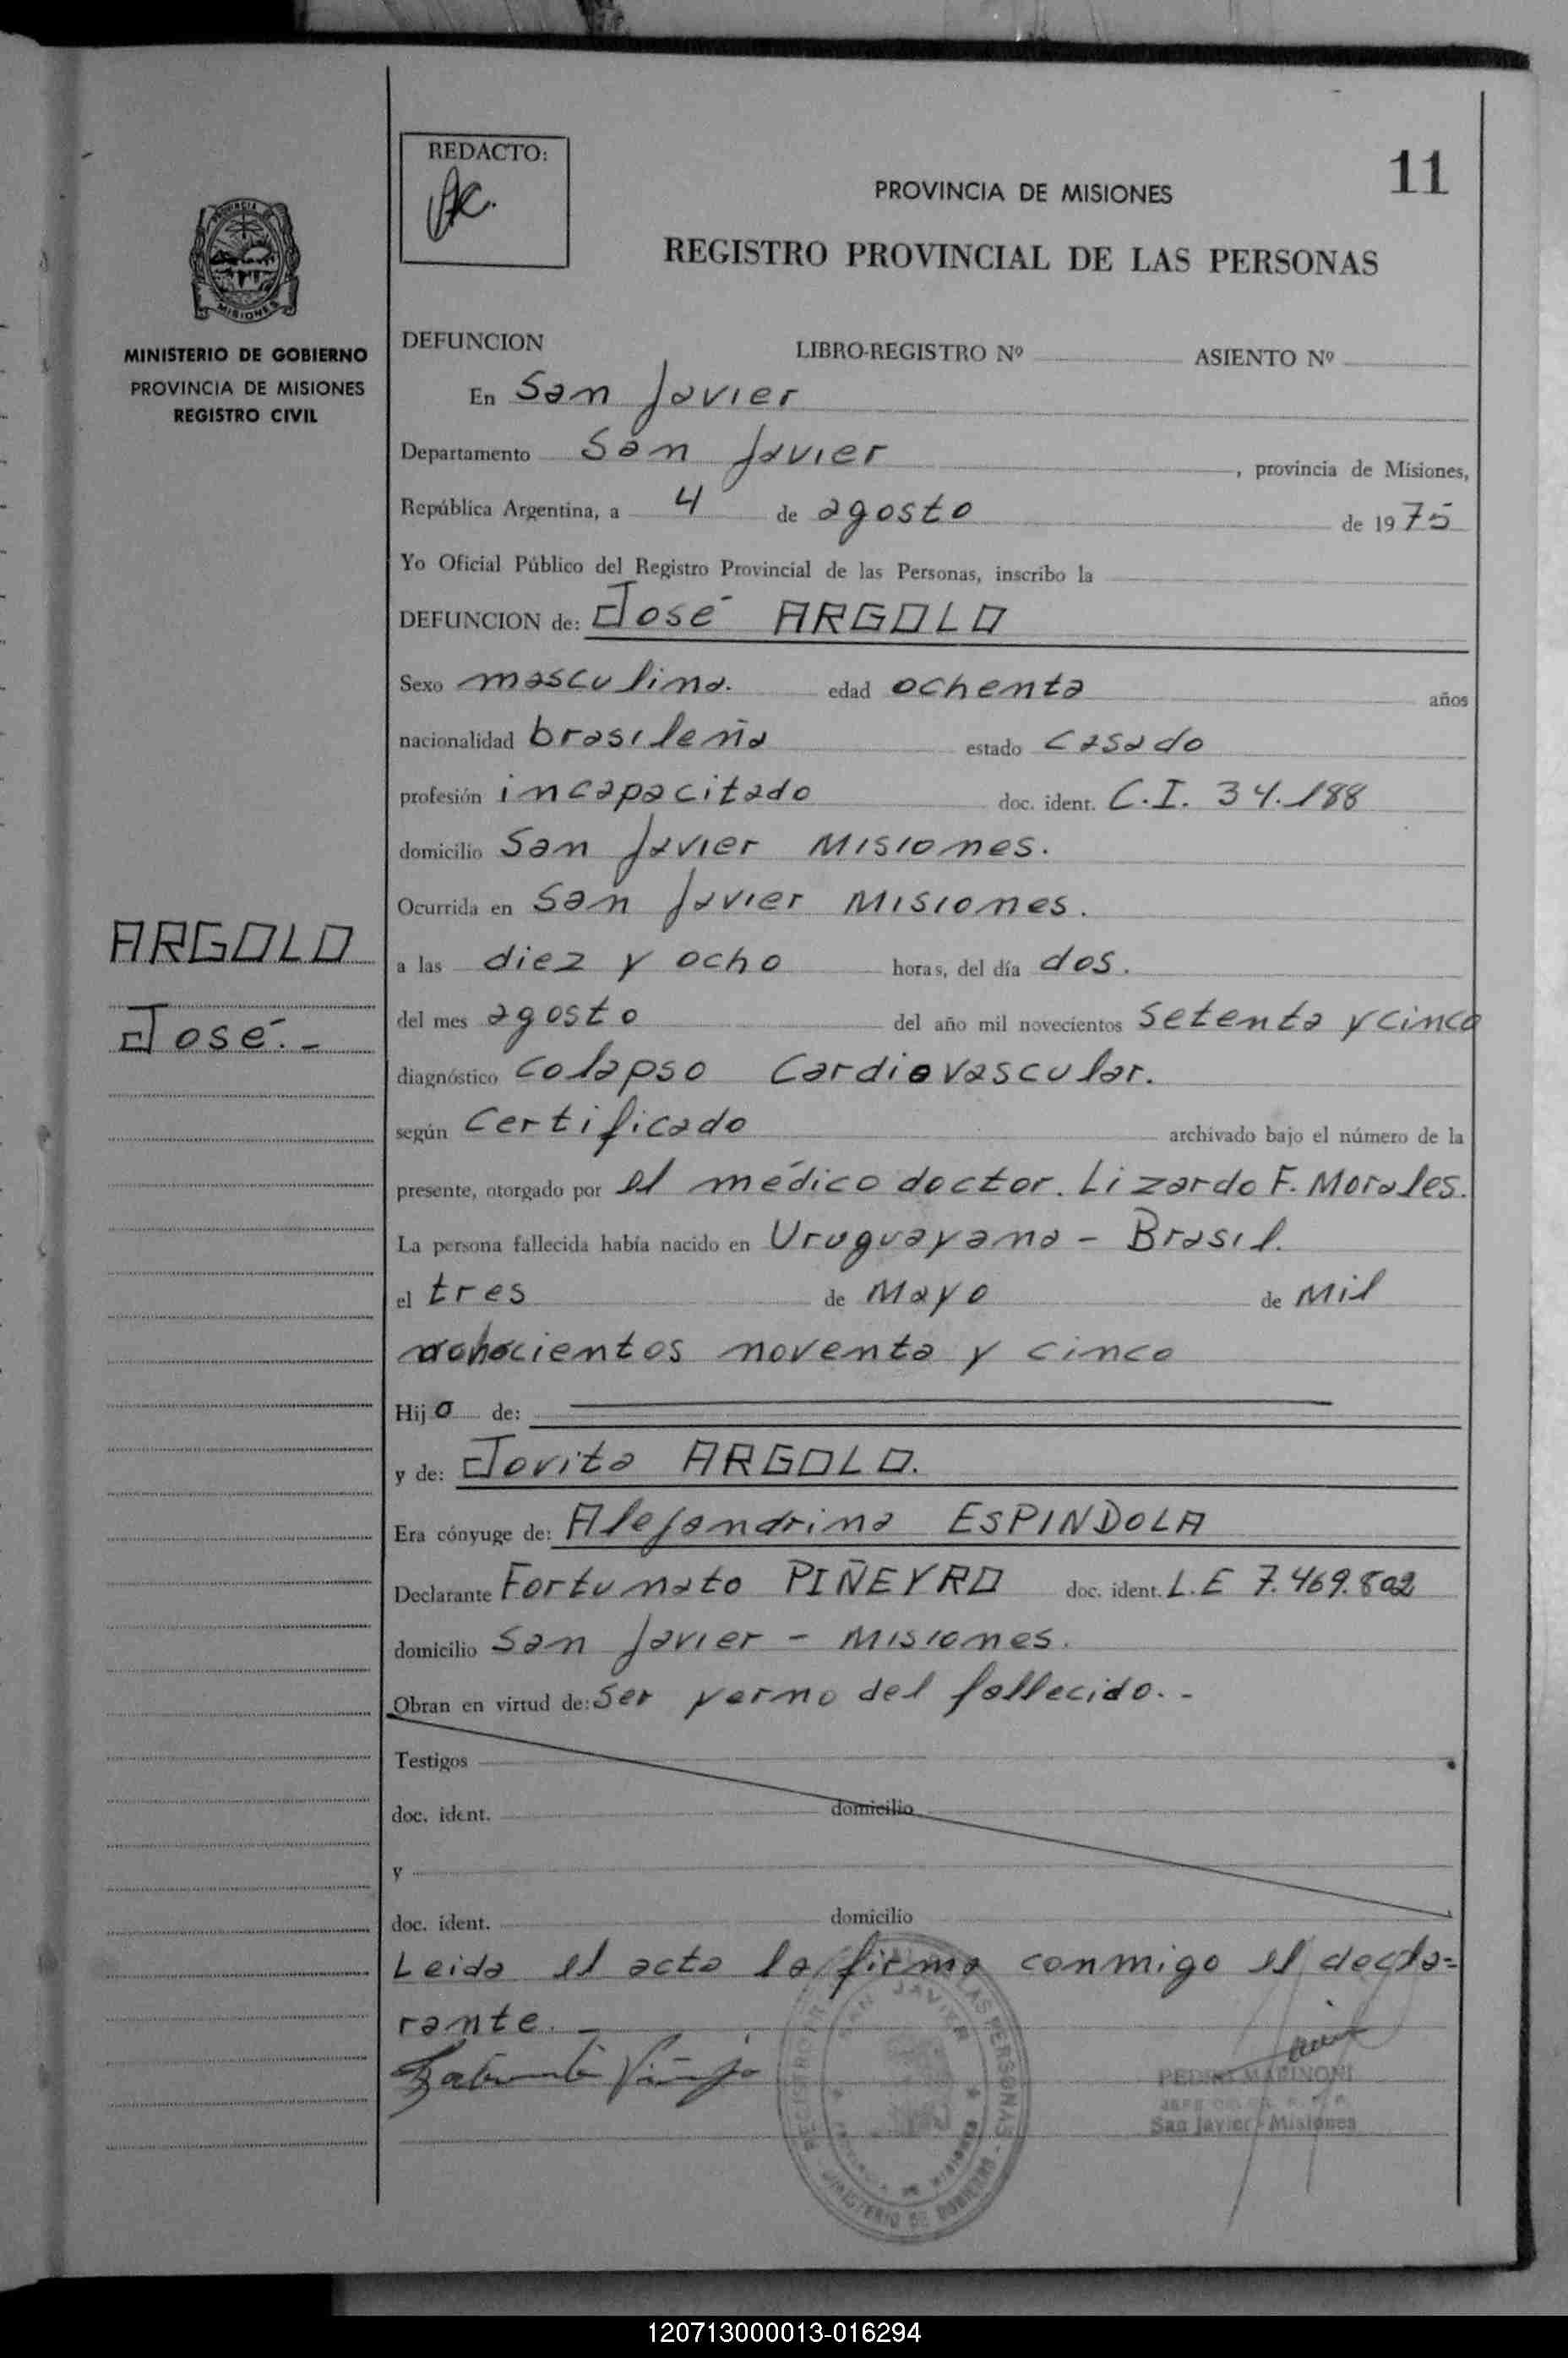 REDACTO:
11
PROVINCIA DE MISIONES
REGISTRO PROVINCIAL DE LAS PERSONAS
MISIONES
MINISTERIO DE GOBIERNO
PROVINCIA DE MISIONES
REGISTRO CIVIL
DEFUNCION LIBRO-REGISTRO Nº ASIENTO Nº
En San Javier
Departamento San Javier, provincia de Misiones,
República Argentina, a 4 de agosto de 1975
Yo Oficial Público del Registro Provincial de las Personas, inscribo la
DEFUNCION de: José ARGOLO
Sexo masculino. edad ochenta años
nacionalidad brasileña estado casado
profesión incapacitado doc. ident. C.I. 34.188
domicilio San Javier Misiones.
Ocurrida en San Javier Misiones.
ARGOLO
José.-
a las diez y ocho horas, del día dos.
del mes agosto del año mil novecientos setenta y cinco
diagnóstico colapso cardiovascular.
según certificado archivado bajo el número de la
presente, otorgado por el médico doctor. Lizardo F. Morales.
La persona fallecida había nacido en Uruguayana - Brasil.
el tres de Mayo de mil
ochocientos noventa y cinco
Hijo de:
y de: Jovita ARGOLO.
Era cónyuge de: Alejandrina ESPINDOLA
Declarante Fortunato PIÑEYRO doc. ident. L.E 7.469.802
domicilio San Javier - Misiones.
Obran en virtud de: Ser yerno del fallecido.-
Testigos
doc. ident. domicilio
y
doc. ident. domicilio
Leida el acta la firma conmigo el decla=
rante.-
REGISTRO PERSONAS
SAN JAVIER
MINISTERIO DE GOBIERNO
PEDRO MARINONI
San Javier - Misiones
120713000013-016294